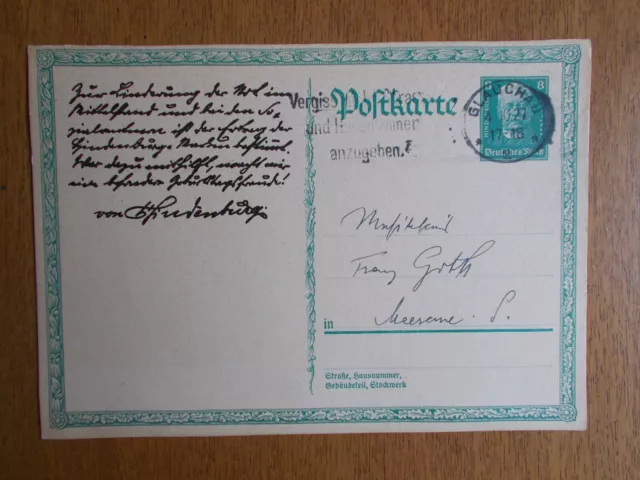 Zur Linderung der Not im
Mittelstand und bei den So-
zialrentnern ist der Ertrag der
Hindenburg-Marken bestimmt.
Wer dazu mithilft, macht mir
eine besondere Geburtstagsfreude!
von Hindenburg
Vergis
und
anzugeben.
Postkarte
GLAUCHAU
8
Deutsches Reich
Franz Goth
in Meerane S.
Straße, Hausnummer,
Gebäudeteil, Stockwerk